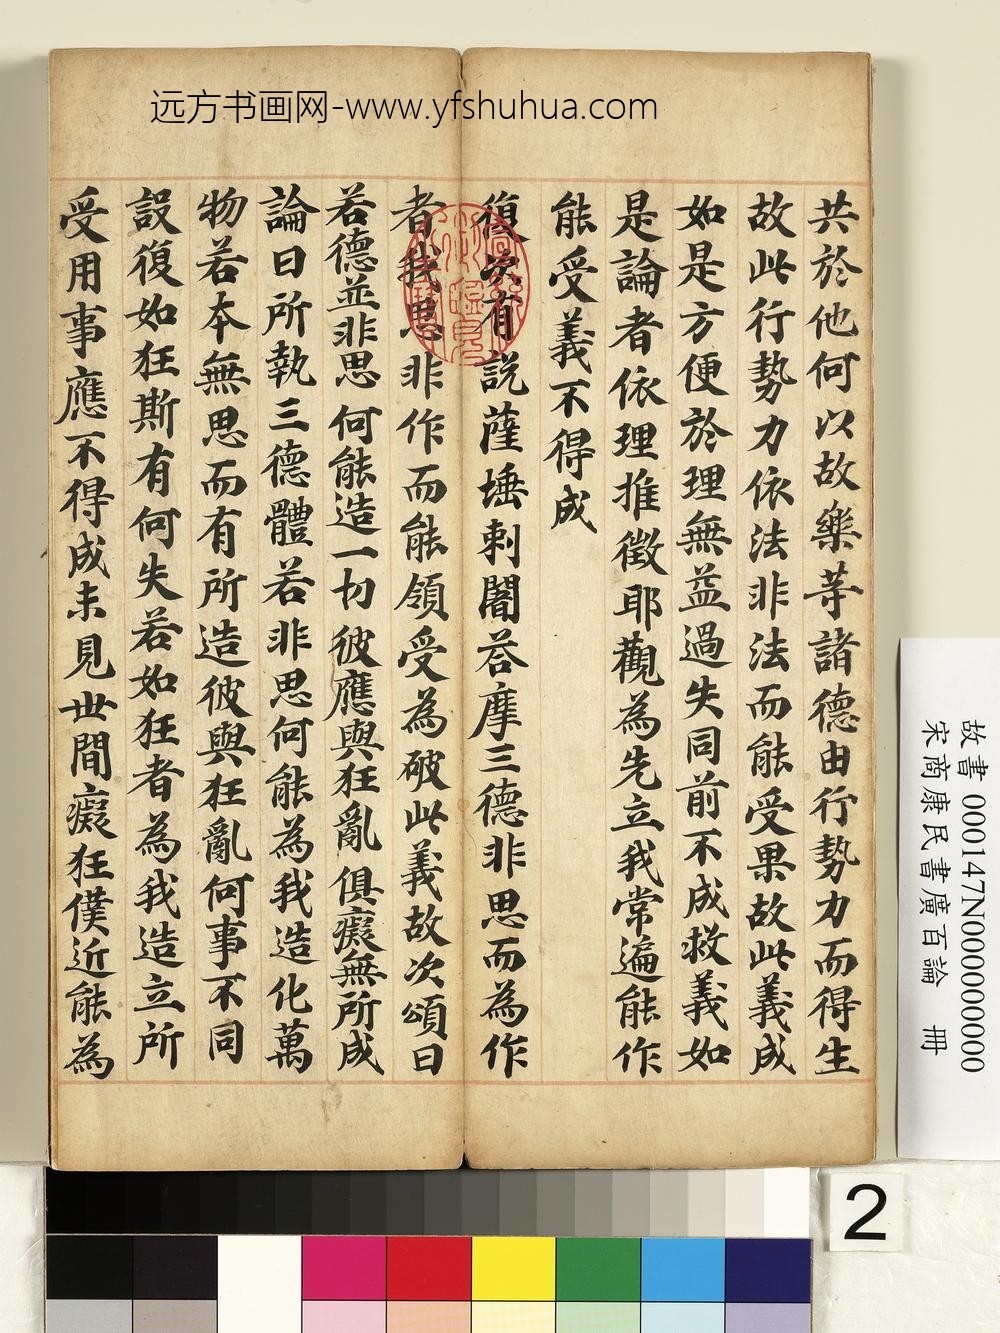 远方书画网-www.yfshuhua.com
共於他何以故樂等諸德由行勢力而得生
故此行勢力依法非法而能受果故此義成
如是方便於理無益過失同前不成救義如
是論者依理推徵耶觀為先立我常遍能作
能受義不得成
復次有說薩埵剌闇荅摩三德非思而為作
者我思非作而能領受為破此義故次頌曰
若德並非思何能造一切彼應與狂亂俱癡無所成
論曰所執三德體若非思何能為我造化萬
物若本無思而有所造彼與狂亂何事不同
設復如狂斯有何失若如狂者為我造立所
受用事應不得成未見世間癡狂僕近能為
故書 000147N000000000
宋商康民書廣百論 冊
2